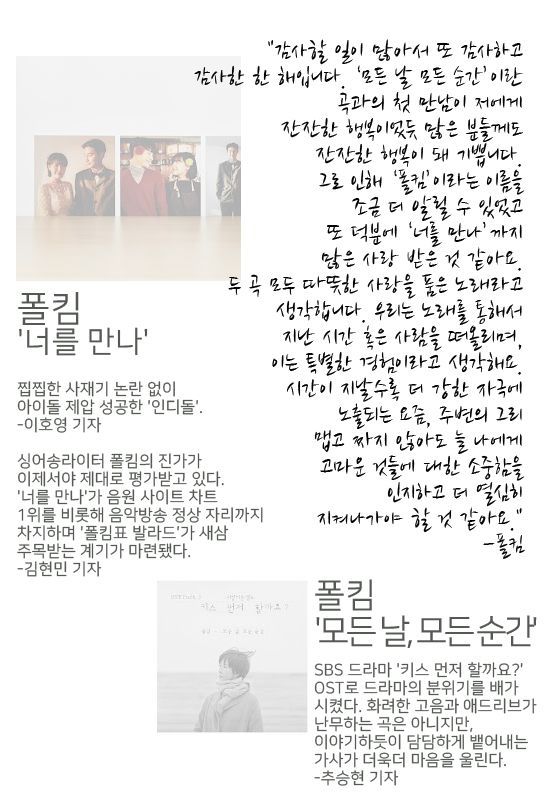 "감사할 일이 많아서 또 감사하고
감사한 한 해입니다. '모든 날 모든 순간'이란
곡과의 첫 만남이 저에게
잔잔한 행복이었듯 많은 분들께도
잔잔한 행복이 돼 기쁩니다.
그로 인해 '폴킴'이라는 이름을
조금 더 알릴 수 있었고
또 덕분에 '너를 만나'까지
많은 사랑 받은 것 같아요.
두 곡 모두 따뜻한 사랑을 품은 노래라고
생각합니다. 우리는 노래를 통해서
지난 시간 혹은 사람을 떠올리며,
이는 특별한 경험이라고 생각해요.
시간이 지날수록 더 강한 자극에
노출되는 요즘, 주변의 그리
맵고 짜지 않아도 늘 나에게
고마운 것들에 대한 소중함을
인지하고 더 열심히
지켜나가야 할 것 같아요."
-폴킴
폴킴
'너를 만나'
찝찝한 사재기 논란 없이
아이돌 제압 성공한 '인디돌'.
-이호영 기자
싱어송라이터 폴킴의 진가가
이제서야 제대로 평가받고 있다.
'너를 만나'가 음원 사이트 차트
1위를 비롯해 음악방송 정상 자리까지
차지하며 '폴킴표 발라드'가 새삼
주목받는 계기가 마련됐다.
-김현민 기자
키스 먼저 할까요?
폴킴
'모든 날, 모든 순간'
SBS 드라마 '키스 먼저 할까요?'
OST로 드라마의 분위기를 배가
시켰다. 화려한 고음과 애드리브가
난무하는 곡은 아니지만,
이야기하듯이 담담하게 뱉어내는
가사가 더욱더 마음을 울린다.
-추승현 기자